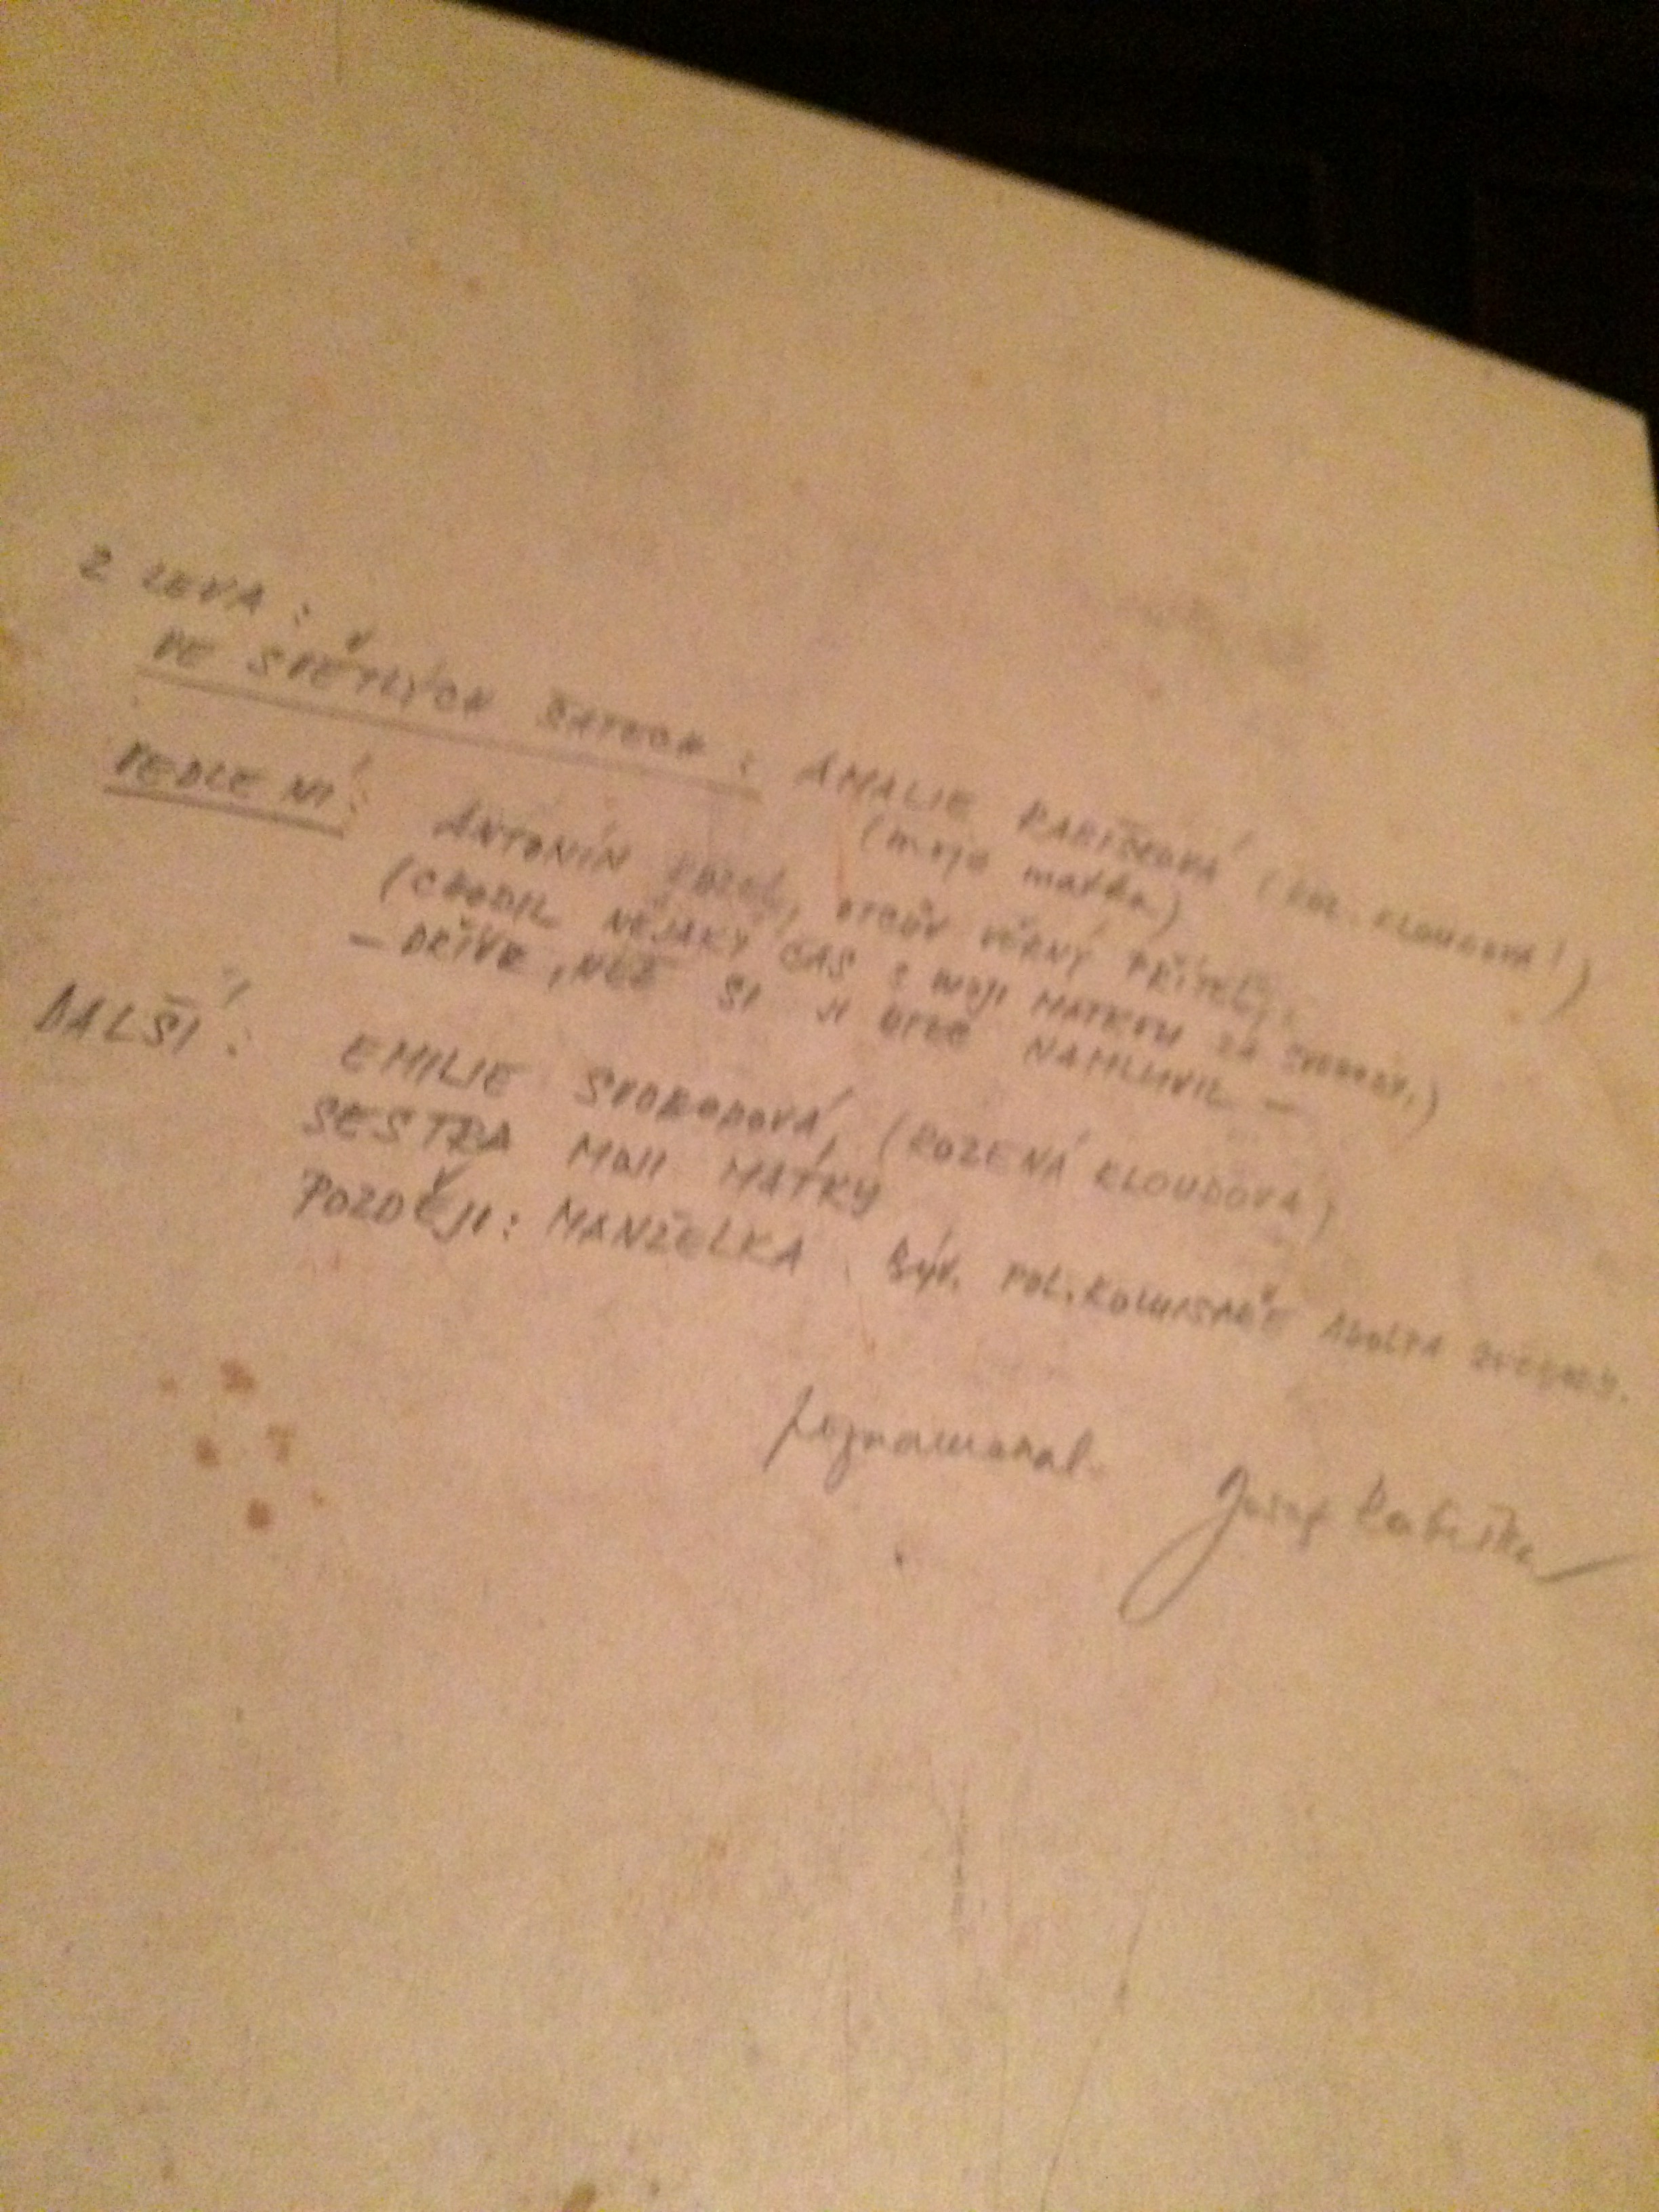 Z LEVA:
VE SVĚTLÝCH ŠATECH: AMALIE (ROZ. KLOUDOVÁ!)
(moje matka)
VEDLE NÍ: ANTONÍN OTCŮV VĚRNÝ PŘÍTEL,
(CHODIL NĚJAKÝ ČAS S MOJI MATKOU ZA SVOBODY.)
— DŘÍVE, NEŽ SI JI OTEC NAMLUVIL —
DALŠÍ: EMILIE SVOBODOVÁ, (ROZENÁ KLOUDOVÁ)
SESTRA MOJI MATKY
POZDĚJI: MANŽELKA BÝV. POL. KOMISAŘE ADOLFA SVOBODY.
poznamenal Josef